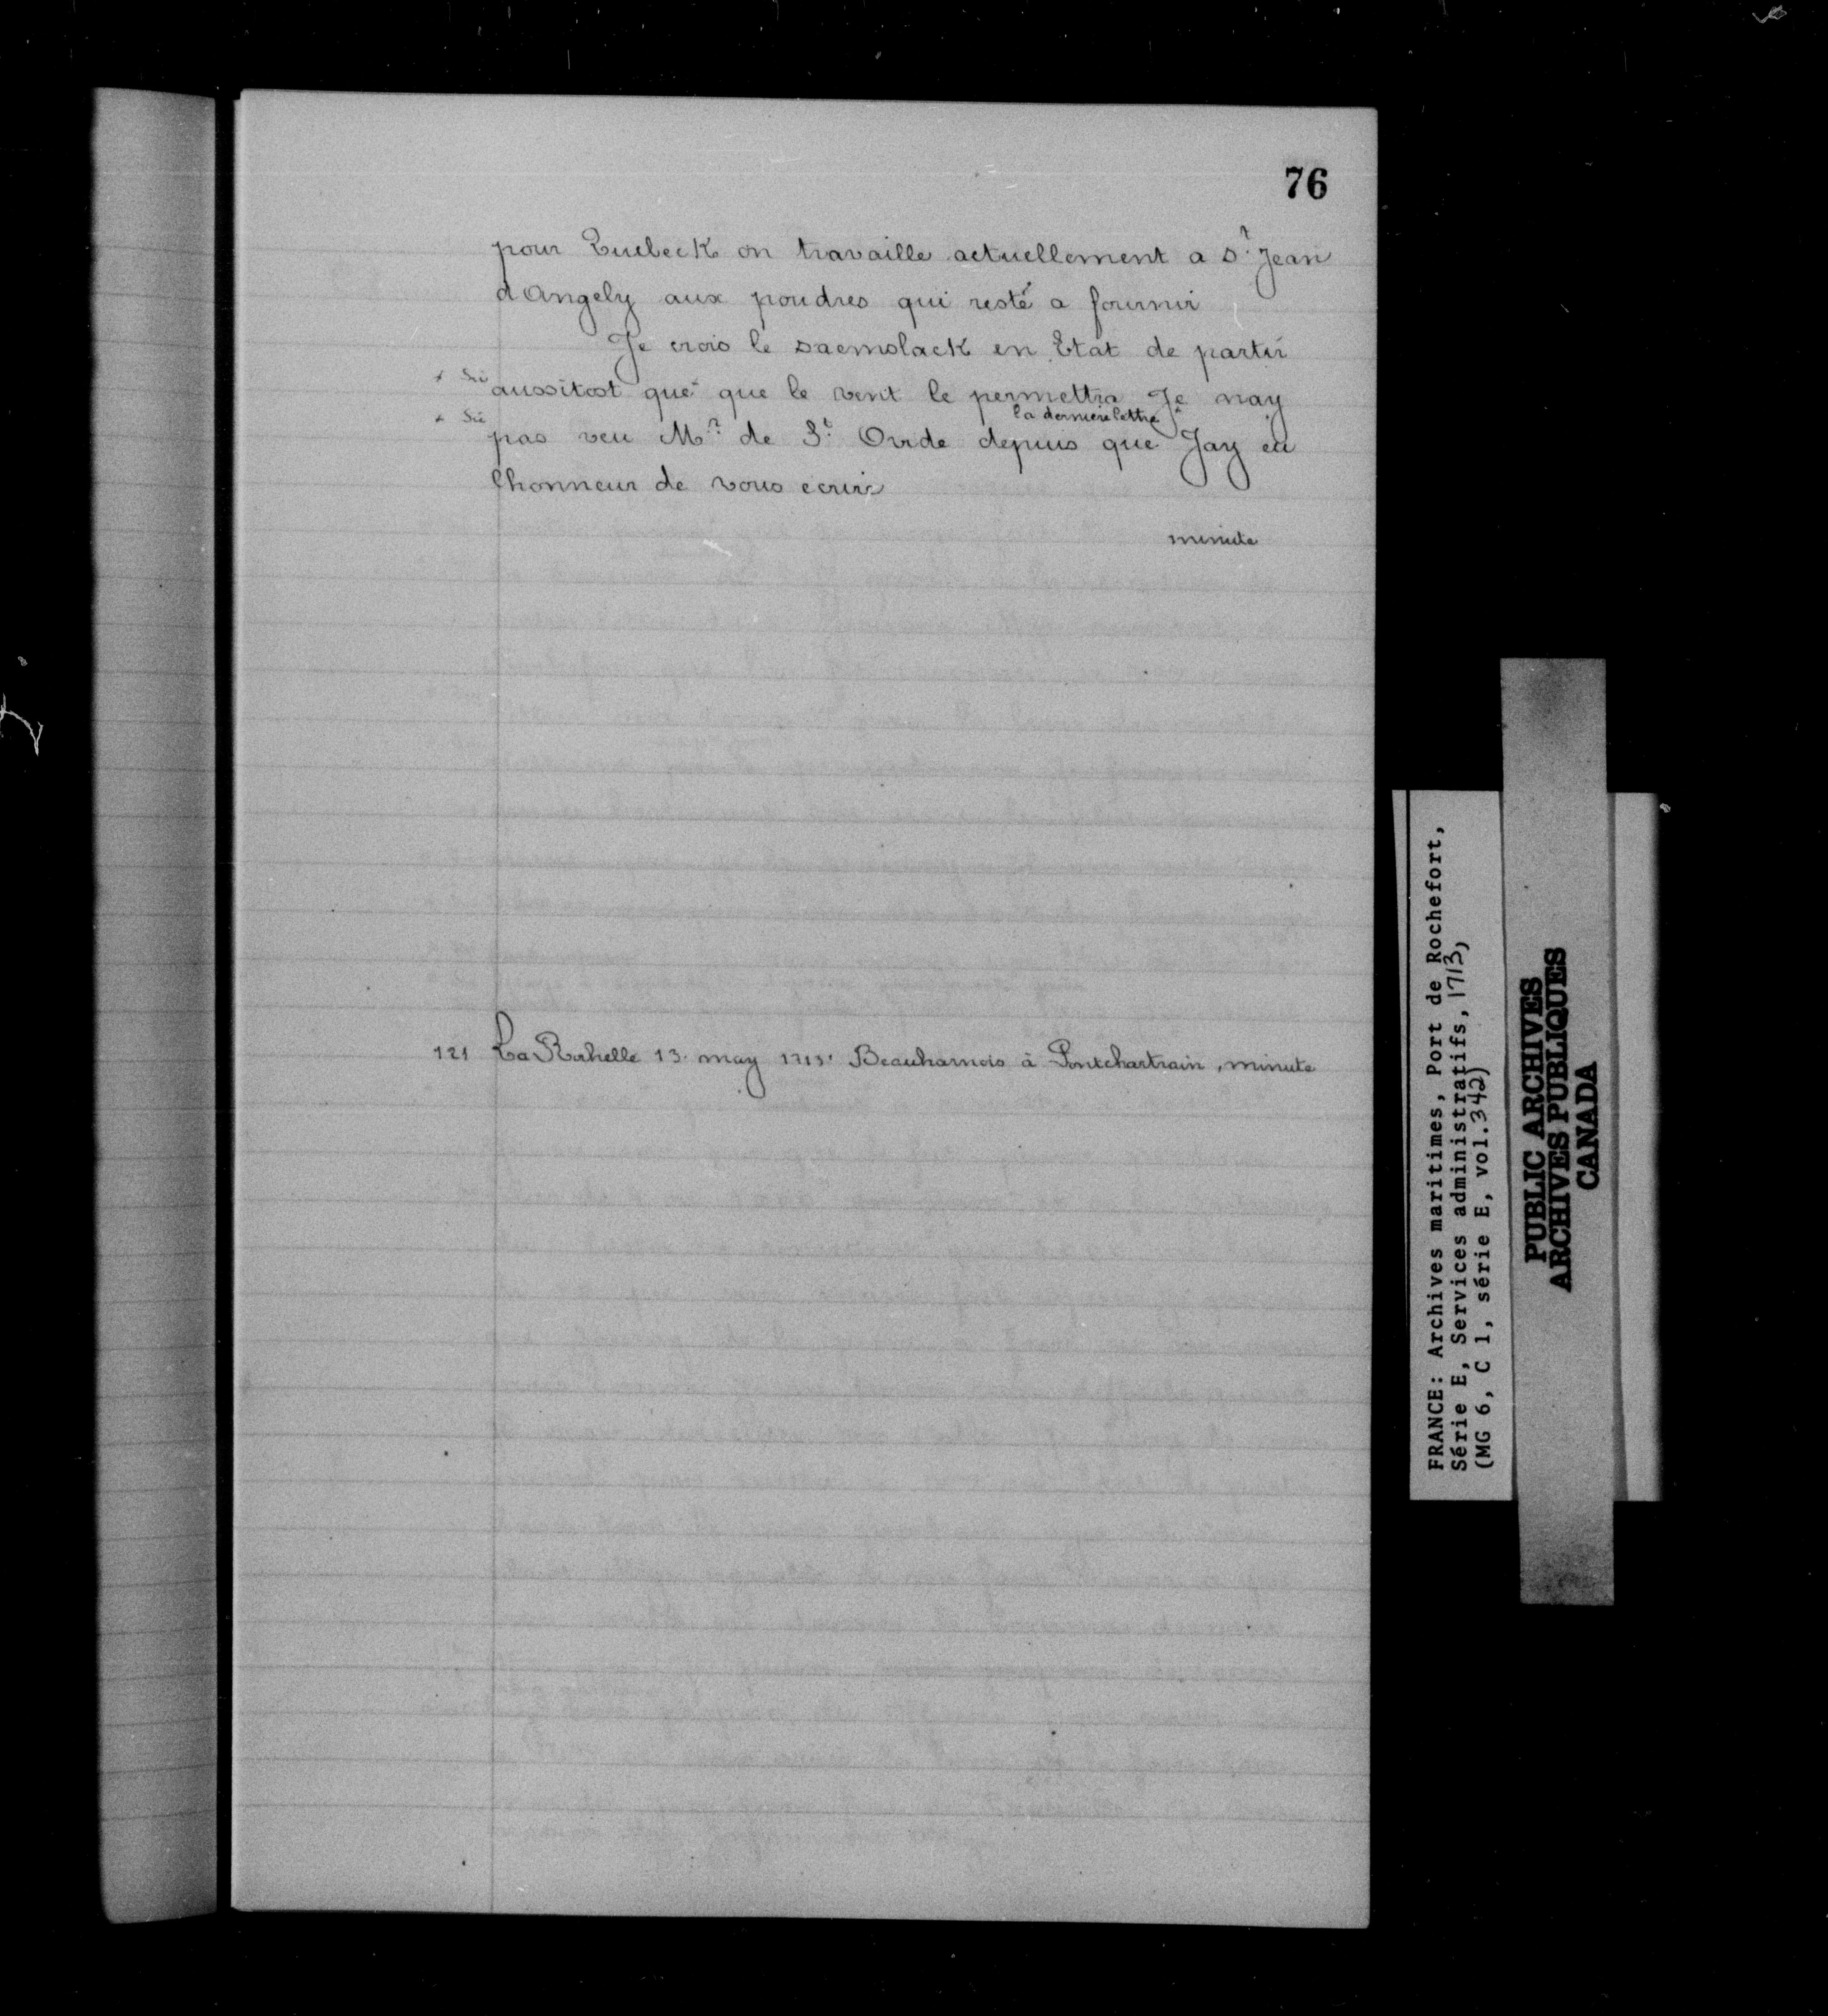 76
pour Quebeck on travaille actuellement a St. Jean
d'Angely aux poudres qui resté a fournir
Je crois le saemslack en Etat de partir
* Sic aussitost que* que le vent le permettra Je nay
la derniere lettre*
* Sic pas veu Mr. de St. Ovide depuis que Jay eu
lhonneur de vous ecrire
minute
121 La Rochelle 13. may 1713. Beauharnois à Pontchartrain, minute
FRANCE: Archives maritimes, Port de Rochefort,
Série E, Services administratifs, 1713,
(MG 6, C 1, série E, vol. 342)
PUBLIC ARCHIVES
ARCHIVES PUBLIQUES
CANADA